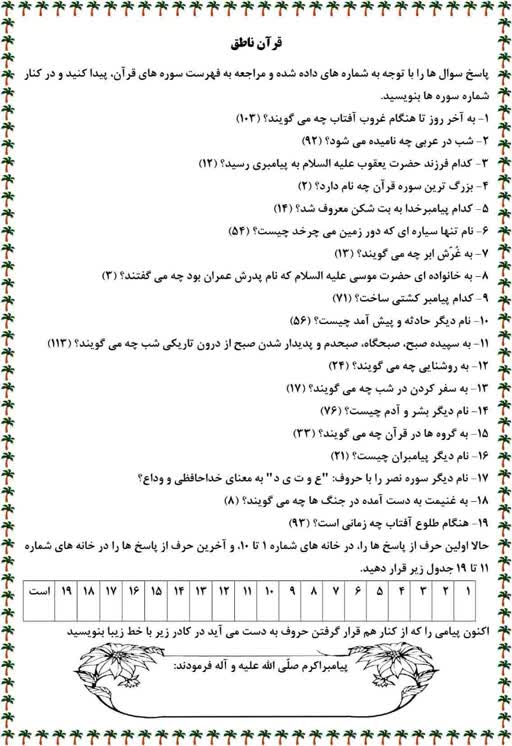 قرآن ناطق
پاسخ سوال ها را با توجه به شماره های داده شده و مراجعه به فهرست سوره های قرآن، پیدا کنید و در کنار
شماره سوره ها بنویسید.
۱- به آخر روز تا هنگام غروب آفتاب چه می گویند؟ (۱۰۳)
۲- شب در عربی چه نامیده می شود؟ (۹۲)
۳- کدام فرزند حضرت یعقوب علیه السلام به پیامبری رسید؟ (۱۲)
۴- بزرگ ترین سوره قرآن چه نام دارد؟ (۲)
۵- کدام پیامبرخدا به بت شکن معروف شد؟ (۱۴)
۶- نام تنها سیاره ای که دور زمین می چرخد چیست؟ (۵۴)
۷- به غُرّش ابر چه می گویند؟ (۱۳)
۸- به خانواده ای حضرت موسی علیه السلام که نام پدرش عمران بود چه می گفتند؟ (۳)
۹- کدام پیامبر کشتی ساخت؟ (۷۱)
۱۰- نام دیگر حادثه و پیش آمد چیست؟ (۵۶)
۱۱- به سپیده صبح، صبحگاه، صبحدم و پدیدار شدن صبح از درون تاریکی شب چه می گویند؟ (۱۱۳)
۱۲- به روشنایی چه می گویند؟ (۲۴)
۱۳- به سفر کردن در شب چه می گویند؟ (۱۷)
۱۴- نام دیگر بشر و آدم چیست؟ (۷۶)
۱۵- به گروه ها در قرآن چه می گویند؟ (۳۳)
۱۶- نام دیگر پیامبران چیست؟ (۲۱)
۱۷- نام دیگر سوره نصر را با حروف: "ع و ت ی د" به معنای خداحافظی و وداع؟
۱۸- به غنیمت به دست آمده در جنگ ها چه می گویند؟ (۸)
۱۹- هنگام طلوع آفتاب چه زمانی است؟ (۹۳)
حالا اولین حرف از پاسخ ها را، در خانه های شماره ۱ تا ۱۰، و آخرین حرف از پاسخ ها را در خانه های شماره
۱۱ تا ۱۹ جدول زیر قرار دهید.
۱ ۲ ۳ ۴ ۵ ۶ ۷ ۸ ۹ ۱۰ ۱۱ ۱۲ ۱۳ ۱۴ ۱۵ ۱۶ ۱۷ ۱۸ ۱۹ است
اکنون پیامی را که از کنار هم قرار گرفتن حروف به دست می آید در کادر زیر با خط زیبا بنویسید
پیامبراکرم صلّی الله علیه و آله فرمودند: